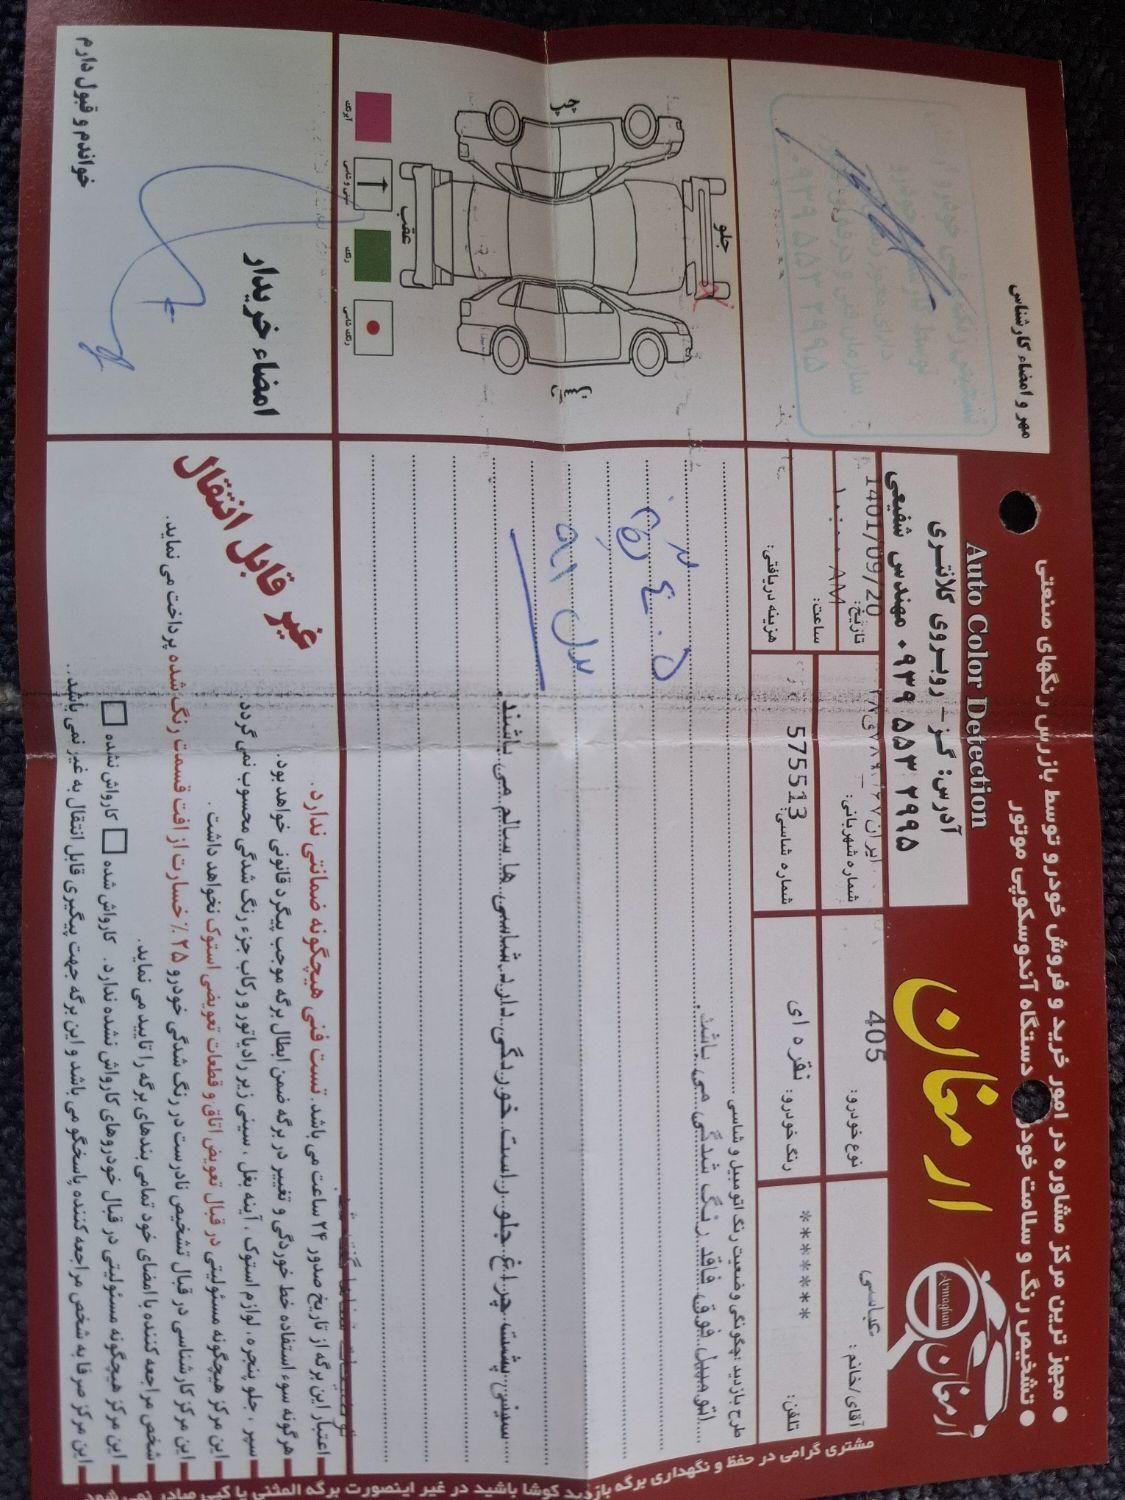 مجهز ترین مرکز مشاوره در امور خرید و فروش خودرو توسط بازرس رنگهای صنعتی
تشخیص رنگ و سلامت خودرو دستگاه آندوسکوپی موتور
ارمغان
Armaghan
ارمغان
Auto Color Detection
آدرس: گز - روبروی کلانتری
۰۹۳۹ ۵۵۳ ۲۹۹۵ مهندس شفیعی
مهر و امضاء کارشناس
آقای/خانم: عباسی
نوع خودرو: 405
شماره شهربانی: ایران
تاریخ: 1401/09/20
تلفن: *******
رنگ خودرو: نقره ای
شماره شاسی: 575513
ساعت: AM
هزینه دریافتی:
طرح بازدید :چگونگی وضعیت رنگ اتومبیل و شاسی
اتومبیل فوق فاقد رنگ شدگی می باشد.
سینی پشت چراغ جلو راست خوردگی دارد.شاسی ها سالم می باشند.
۴۰۵
مدل ۹۱
جلو
عقب
چپ
راست
آبرنگ
رنگ
رنگ شاسی
اعتبار این برگه از تاریخ صدور ۲۴ ساعت می باشد. تست فنی هیچگونه ضمانتی ندارد.
هرگونه سوء استفاده خط خوردگی و تغییر در برگه ضمن ابطال برگه موجب پیگرد قانونی خواهد بود.
سپر ، جلو پنجره ، لوازم استوک ، آینه بغل ، سینی زیر رادیاتور و رکاب جزء رنگ شدگی محسوب نمی گردد
این مرکز هیچگونه مسئولیتی در قبال تعویض اتاق و قطعات تعویضی استوک نخواهد داشت .
این مرکز کارشناسی در قبال تشخیص نادرست در رنگ شدگی خودرو ۲۵٪ خسارت از افت قسمت رنگ شده پرداخت می نماید.
شخص مراجعه کننده با امضای خود تمامی بندهای برگه را تایید می نماید.
این مرکز هیچگونه مسئولیتی در قبال خودروهای کارواش نشده ندارد. کارواش شده کارواش نشده
این مرکز صرفا به شخص مراجعه کننده پاسخگو می باشد و این برگه جهت پیگیری قابل انتقال به غیر نمی باشد.
غیر قابل انتقال
امضاء خریدار
خواندم و قبول دارم
مشتری گرامی در حفظ و نگهداری برگه بازدید کوشا باشید در غیر اینصورت برگه المثنی یا کپی صادر نمی شود